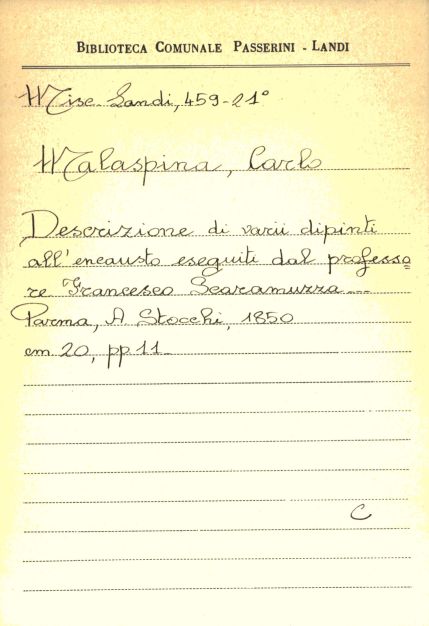 BIBLIOTECA COMUNALE PASSERINI - LANDI
Misc. Landi, 459-21°
Malaspina, Carlo
Descrizione di varii dipinti
all'encausto eseguiti dal professo
re Francesco Scaramuzza ...
Parma, A Stocchi, 1850
cm 20, pp 11
C